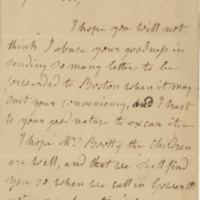 I hope you will not
think I abuse your goodness in
sending so many letters to be
forwarded to Boston when it may
suit your conveniency, and I trust
to your good nature to excuse it.—
I hope Mrs. Bootty the children
are well, and that we shall find
you so, when we call in Gower St